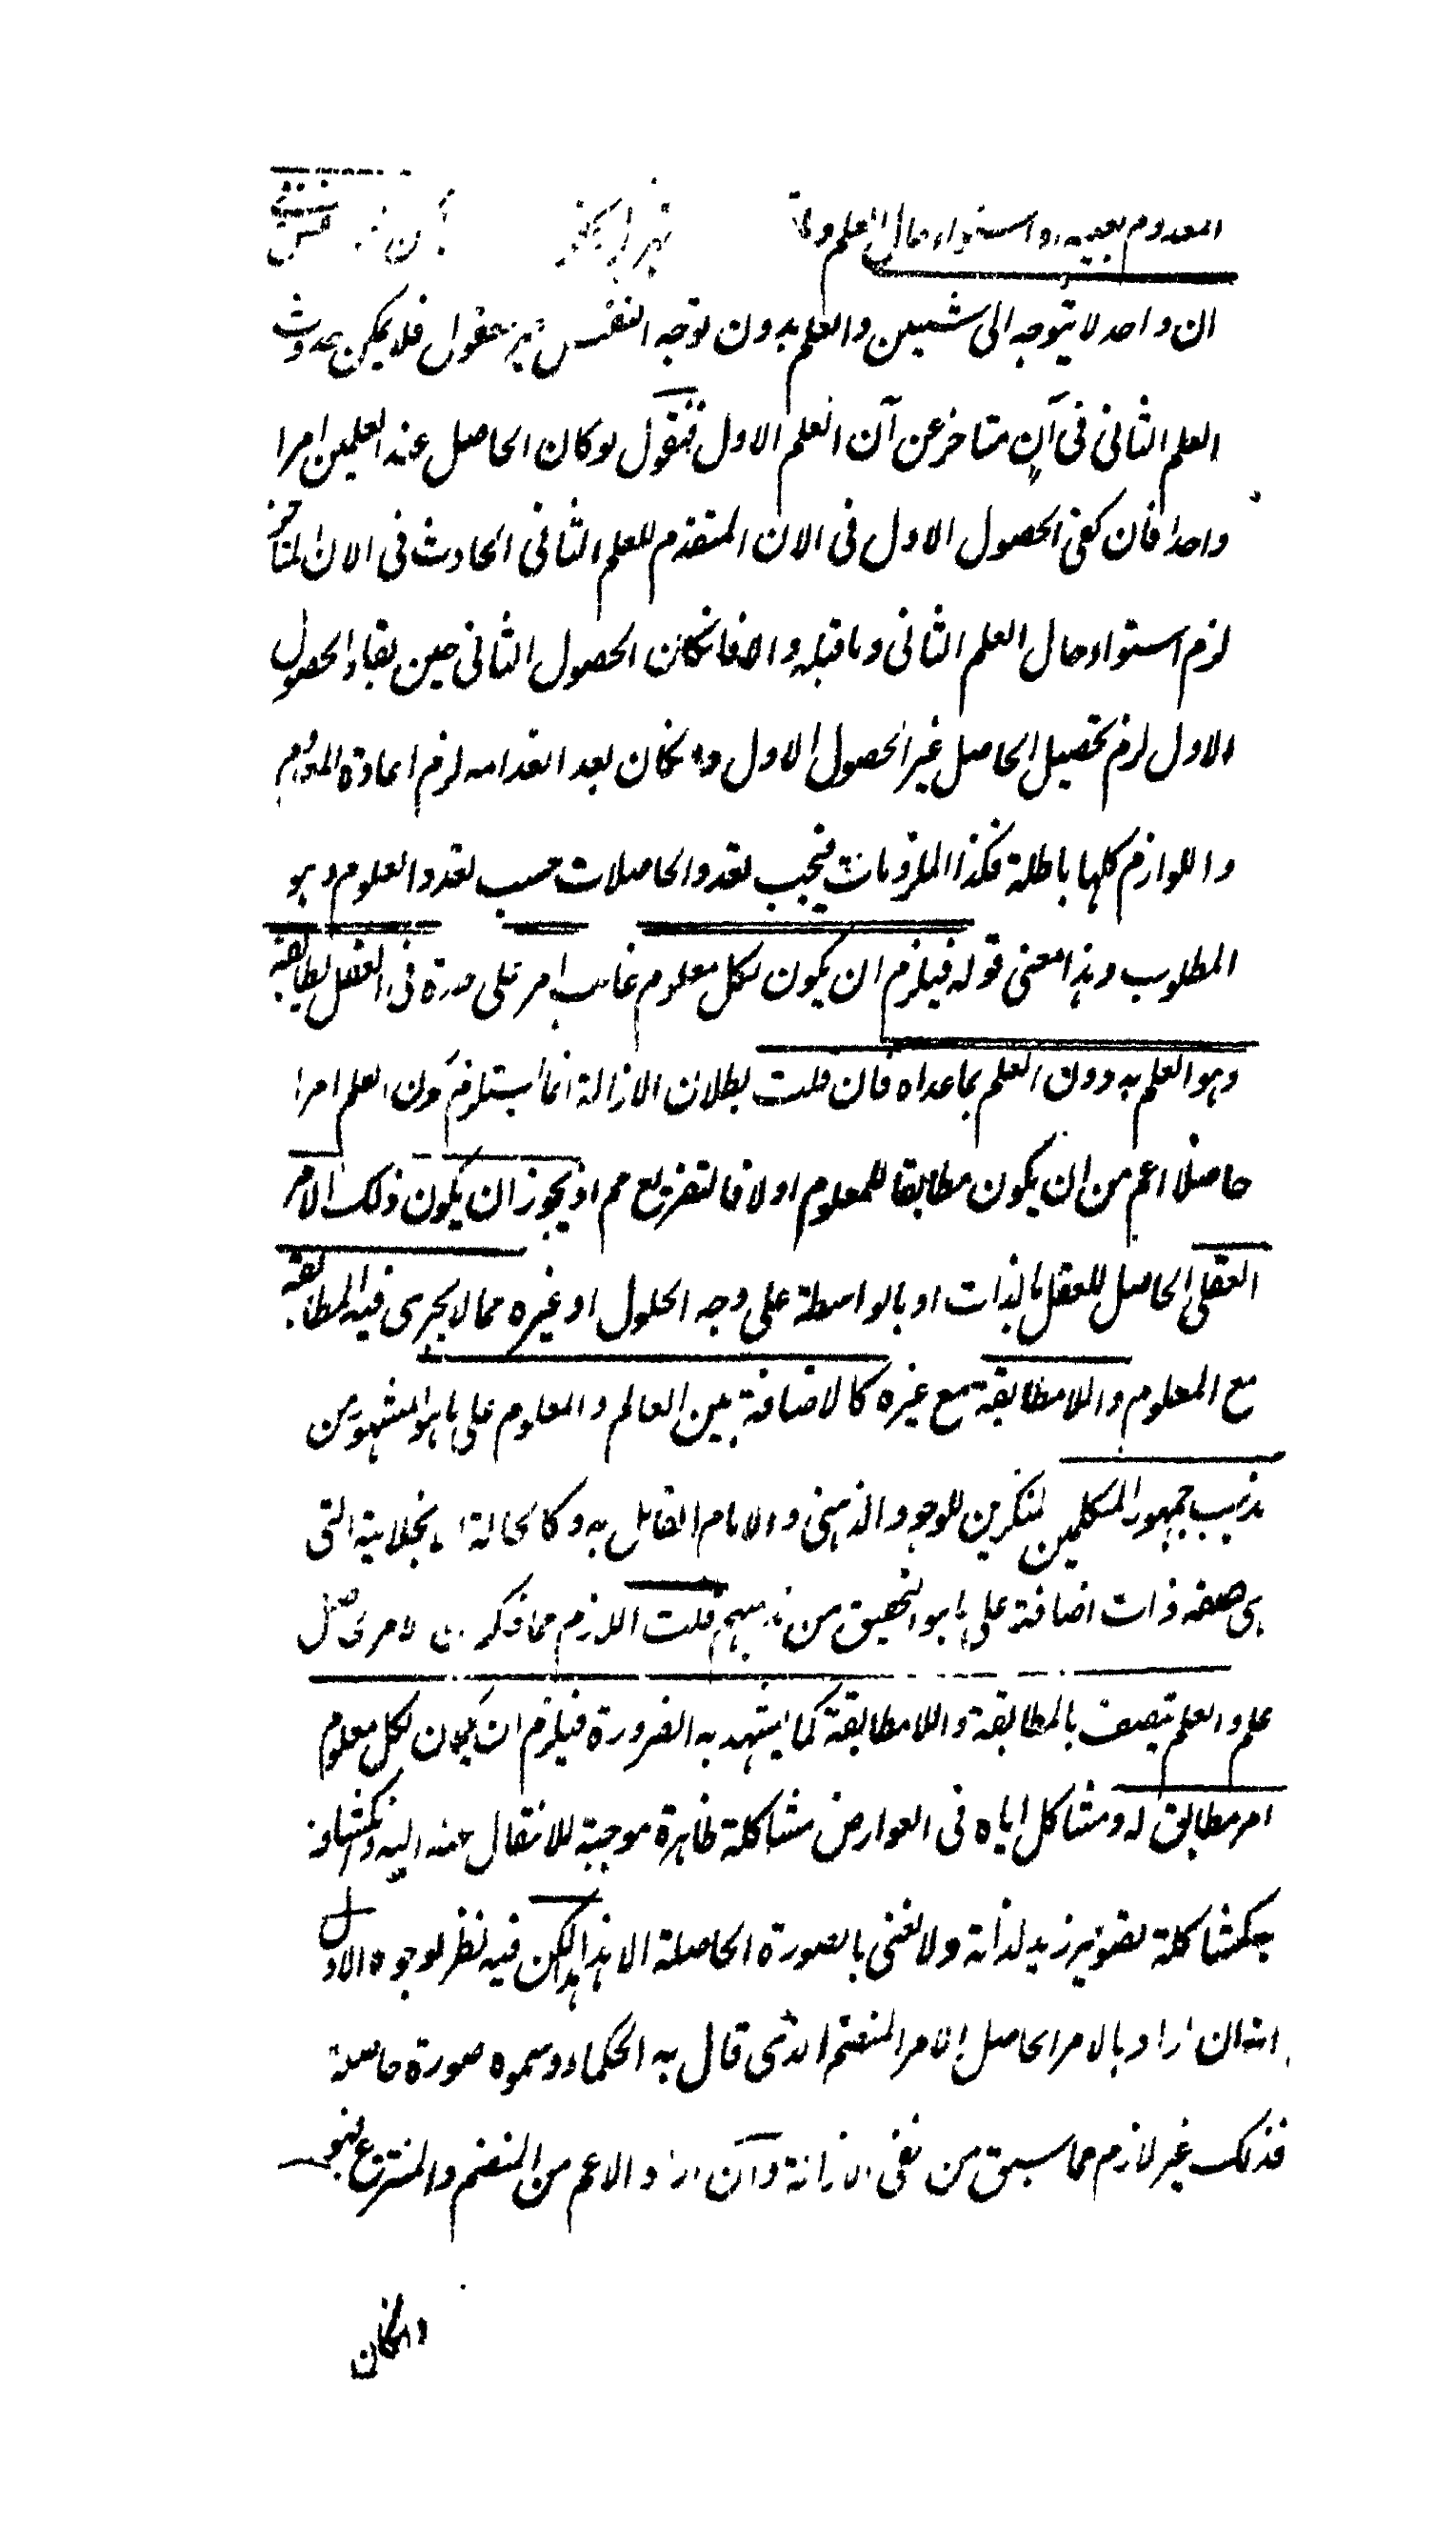 المعدوم بعينه واستواء حال العلم و
ان واحد لا يتوجه الى شيئين والعلم بدون توجه النفس غير معقول فلا يمكن حدوث
العلم الثانى فى آن متاخر عن آن العلم الاول فنقول لو كان الحاصل عند العلمين امرا
واحدا فان كفى الحصول الاول فى الان المتقدم للعلم الثانى الحادث فى الان المتاخر
لزم استواء حال العلم الثانى وما قبله والا فانكان الحصول الثانى حين بقاء الحصول
الاول لزم تحصيل الحاصل غير الحصول الاول وانكان بعد انعدامه لزم اعادة المعدوم
واللوازم كلها باطلة فكذا الملزومات فيجب تعدد الحاصلات حسب تعدد العلوم وهو
المطلوب وهذا معنى قوله فيلزم ان يكون لكل معلوم غائب امر على حدة فى العقل يطابقه
وهو العلم به دون العلم بما عداه فان قلت بطلان الازالة انما يستلزم كون العلم امرا
حاصلا اعم من ان يكون مطابقا للمعلوم اولا فالتفريع مم اذ يجوز ان يكون ذلك الامر
العقلى الحاصل للعقل بالذات او بالواسطة على وجه الحلول او غيره مما لا يجرى فيه المطابقة
مع المعلوم واللامطابقة مع غيره كالاضافة بين العالم والمعلوم على ما هو المشهور من
مذهب جمهور المتكلمين المنكرين للوجود الذهنى والامام القائل به وكالحالة الانجلائية التى
هى صفة ذات اضافة على ما هو التحقيق من مذهبهم قلت اللازم مما ذكر ان الامر الحاصل
علم والعلم يتصف بالمطابقة واللامطابقة كما يشهد به الضرورة فيلزم ان يكون لكل معلوم
امر مطابق له ومشاكل اياه فى العوارض مشاكلة ظاهرة موجبة للانتقال عنه اليه وانكشافه
كمشاكلة تصوير زيد لذاته ولا نعنى بالصورة الحاصلة الا هذا لكن فيه نظر لوجوه الاول
انه ان اراد بالامر الحاصل الامر المنضم الذى قال به الحكماء وسموه صورة حاصلة
فذلك غير لازم مما سبق من نفى الازالة وان اراد الاعم من المنضم والمنتزع فهو
وانكان